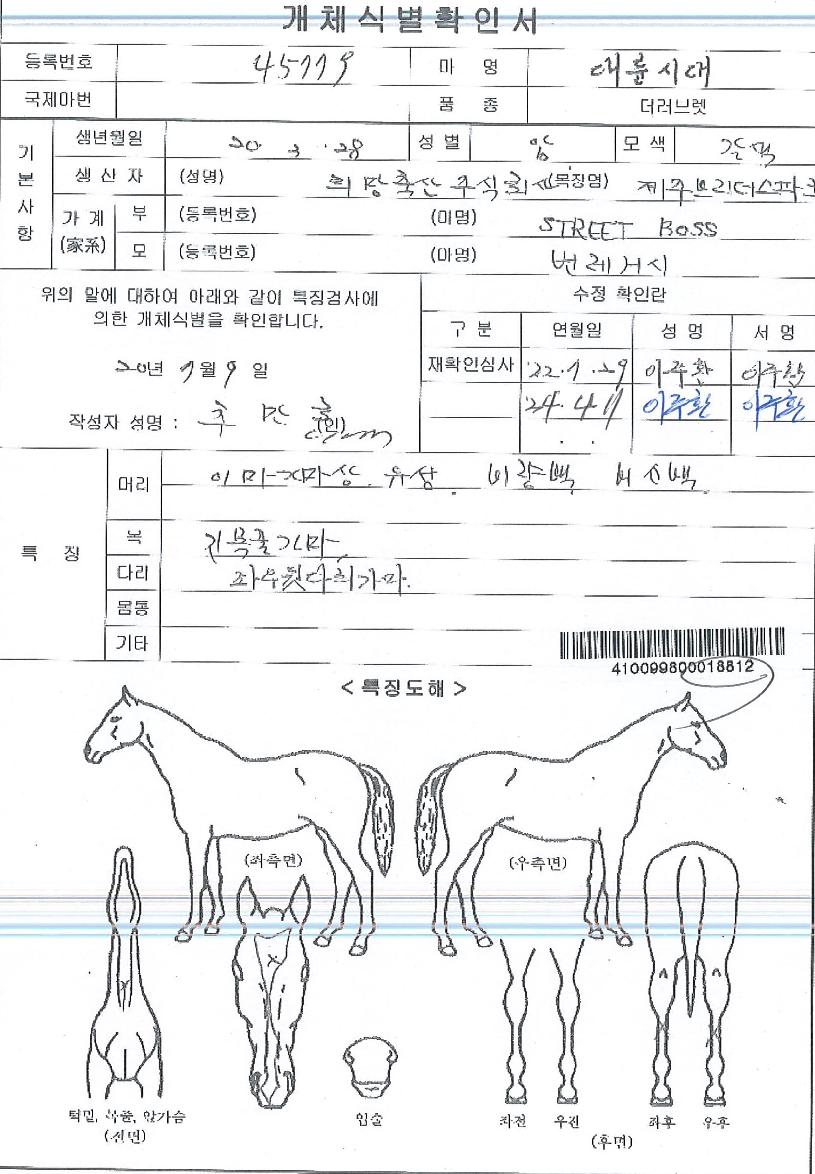 개체식별확인서
등록번호 45119 마 명 대륜시대
국제마번 품 종 더러브렛
기본사항
생년월일 20 3 . 28 성별 암 모색 갈색
생산자 (성명) 희망축산 주식회사 (목장명) 제주브리더스파크
가계(家系) 부 (등록번호) (마명) STREET BOSS
모 (등록번호) (마명) 번레거시
위의 말에 대하여 아래와 같이 특징검사에
의한 개체식별을 확인합니다.
20년 9월 9일
작성자 성명 : (인)
수정 확인란
구 분 연월일 성 명 서 명
재확인심사 '22.1.29 이주환 이주환
'24.4.11 이주환 이주환
특 징
머리 유성. 비량백, 비신백.
목
다리 좌우뒷다리가마.
몸통
기타
410099800018812
< 특징도해 >
(좌측면) (우측면)
턱밑, 목줄, 앞가슴
(전면)
입술
좌전 우전 좌후 우후
(후면)